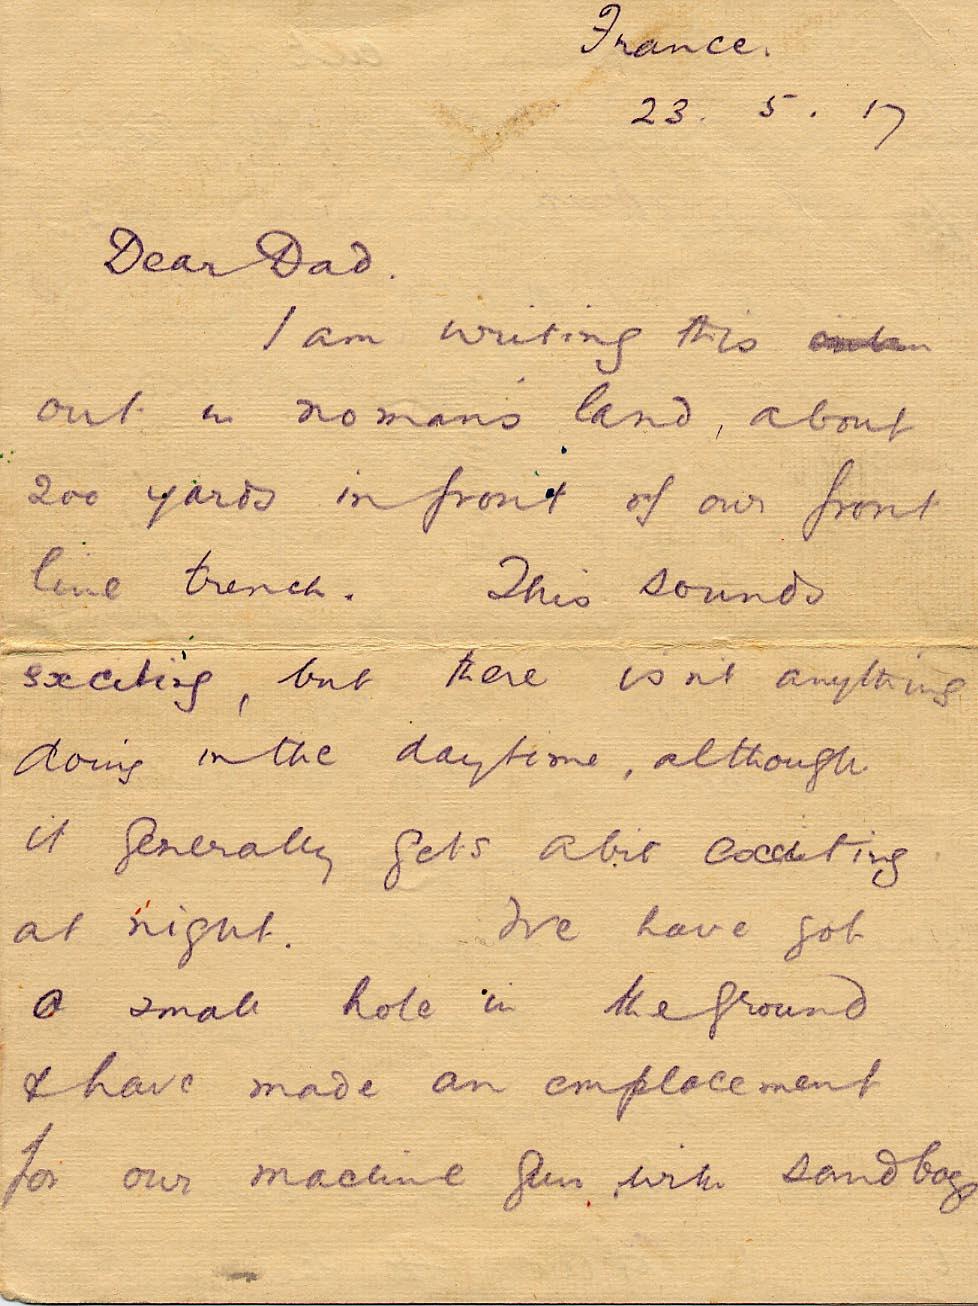 France.
23. 5. 17
Dear Dad.
I am writing this
out in no man's land, about
200 yards in front of our front
line trench. This sounds
exciting, but there isn't anything
doing in the daytime, although
it generally gets a bit exciting
at night. We have got
a small hole in the ground
& have made an emplacement
for our machine gun with sandbags